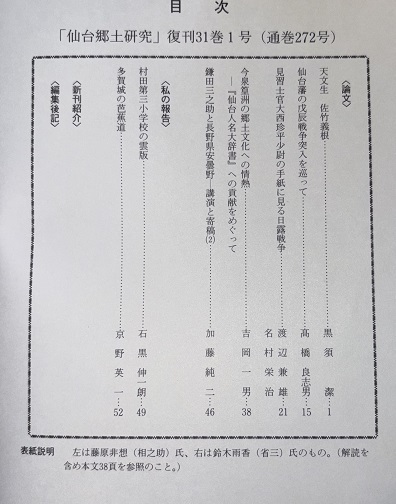 目次
「仙台郷土研究」復刊31巻1号（通巻272号）
〈論文〉
天文生　佐竹義根……………黒須　潔…1
仙台藩の戊辰戦争突入を巡って……………高橋良志男…15
見習士官大西珍平少尉の手紙に見る日露戦争……………渡辺兼雄…21
名村栄治
今泉篁洲の郷土文化への情熱
―『仙台人名大辞書』への貢献をめぐって……………吉岡一男…38
鎌田三之助と長野県安曇野　講演と寄稿(2)……………加藤純二…46
〈私の報告〉
村田第三小学校の雲版……………石黒伸一朗…49
多賀城の芭蕉道……………京野英一…52
〈新刊紹介〉
〈編集後記〉
表紙説明　左は藤原非想（相之助）氏、右は鈴木雨香（省三）氏のもの。（解読を
含め本文38頁を参照のこと。）